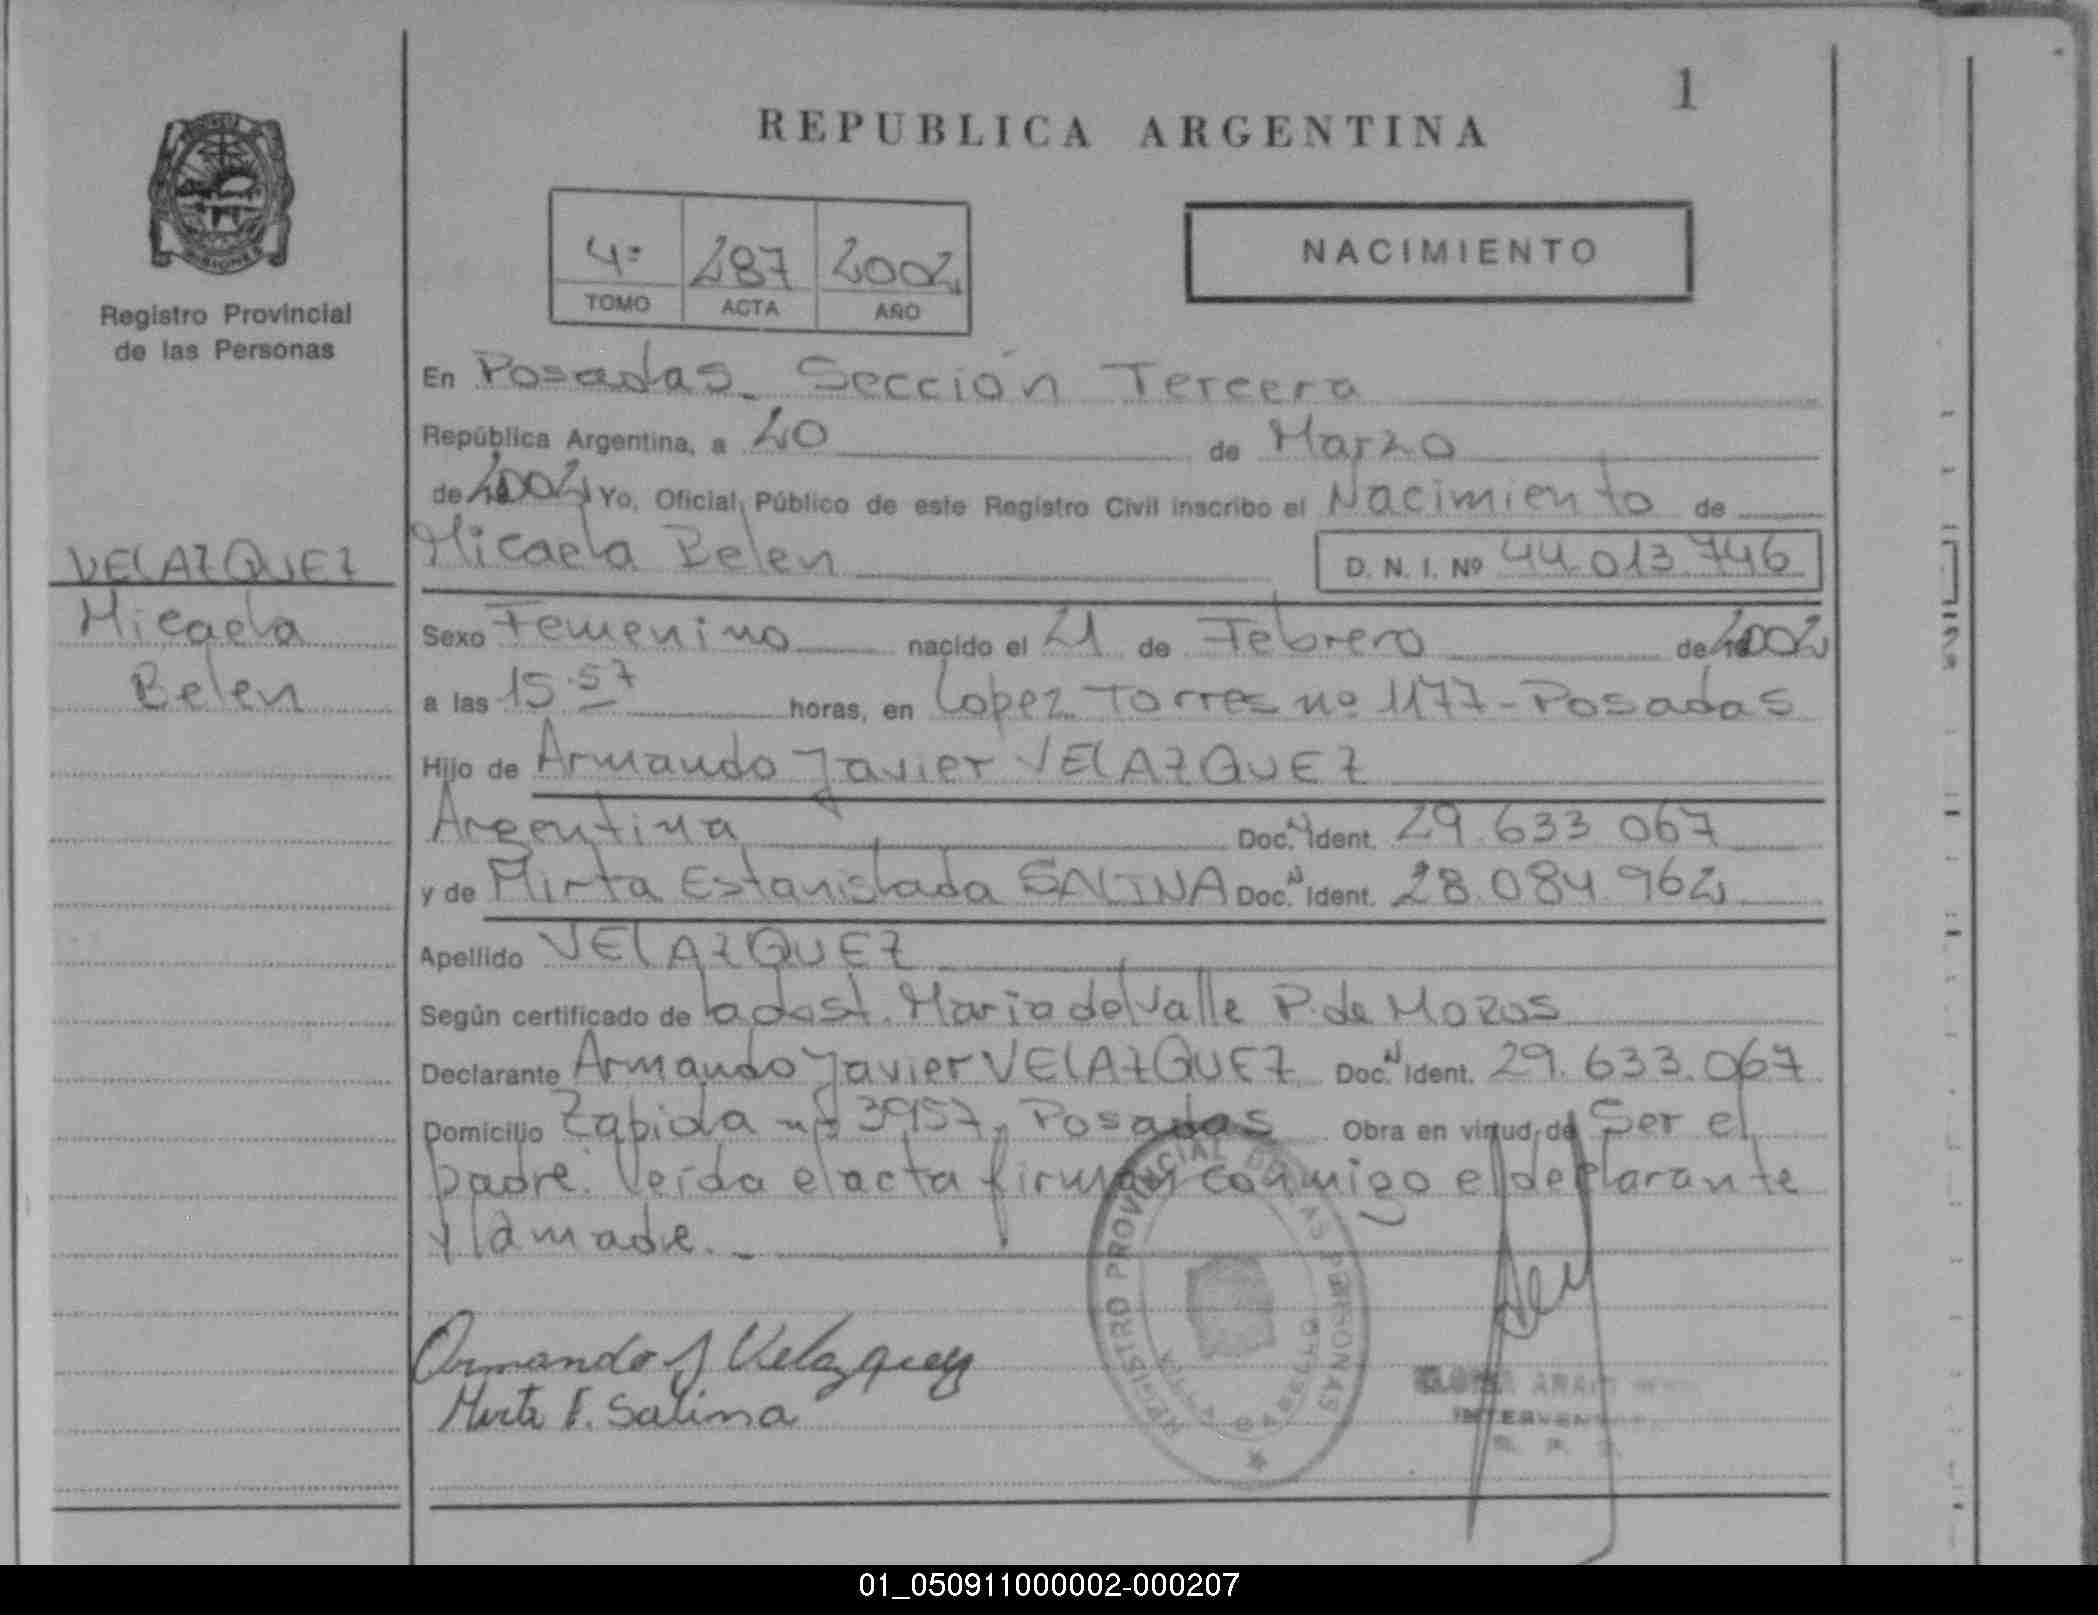 1
REPUBLICA ARGENTINA
4º 287 2002
TOMO ACTA AÑO
NACIMIENTO
Registro Provincial
de las Personas
VELAZQUEZ
Micaela
Belen
En Posadas - Sección Tercera
República Argentina, a 20 de Marzo
de 2002 Yo, Oficial Público de este Registro Civil inscribo el Nacimiento de
Micaela Belen D. N. I. Nº 44.013.746
Sexo Femenino nacido el 21 de Febrero de 2002
a las 15.57 horas, en Lopez Torres nº 1177 - Posadas
Hijo de Armando Javier VELAZQUEZ
Argentina Doc. N Ident. 29.633.067
y de Mirta Estanislada SALINA Doc. N Ident. 28.084.962
Apellido VELAZQUEZ
Según certificado de la obst. Maria del Valle P. de
Declarante Armando Javier VELAZQUEZ Doc. N Ident. 29.633.067
Domicilio Zapiola nº 3957, Posadas Obra en virtud de Ser el
padre. Leída el acta firman conmigo el declarante
y la madre. -
Armando J Velazquez
Mirta E. Salina
REGISTRO PROVINCIAL DE LAS PERSONAS
01_050911000002-000207